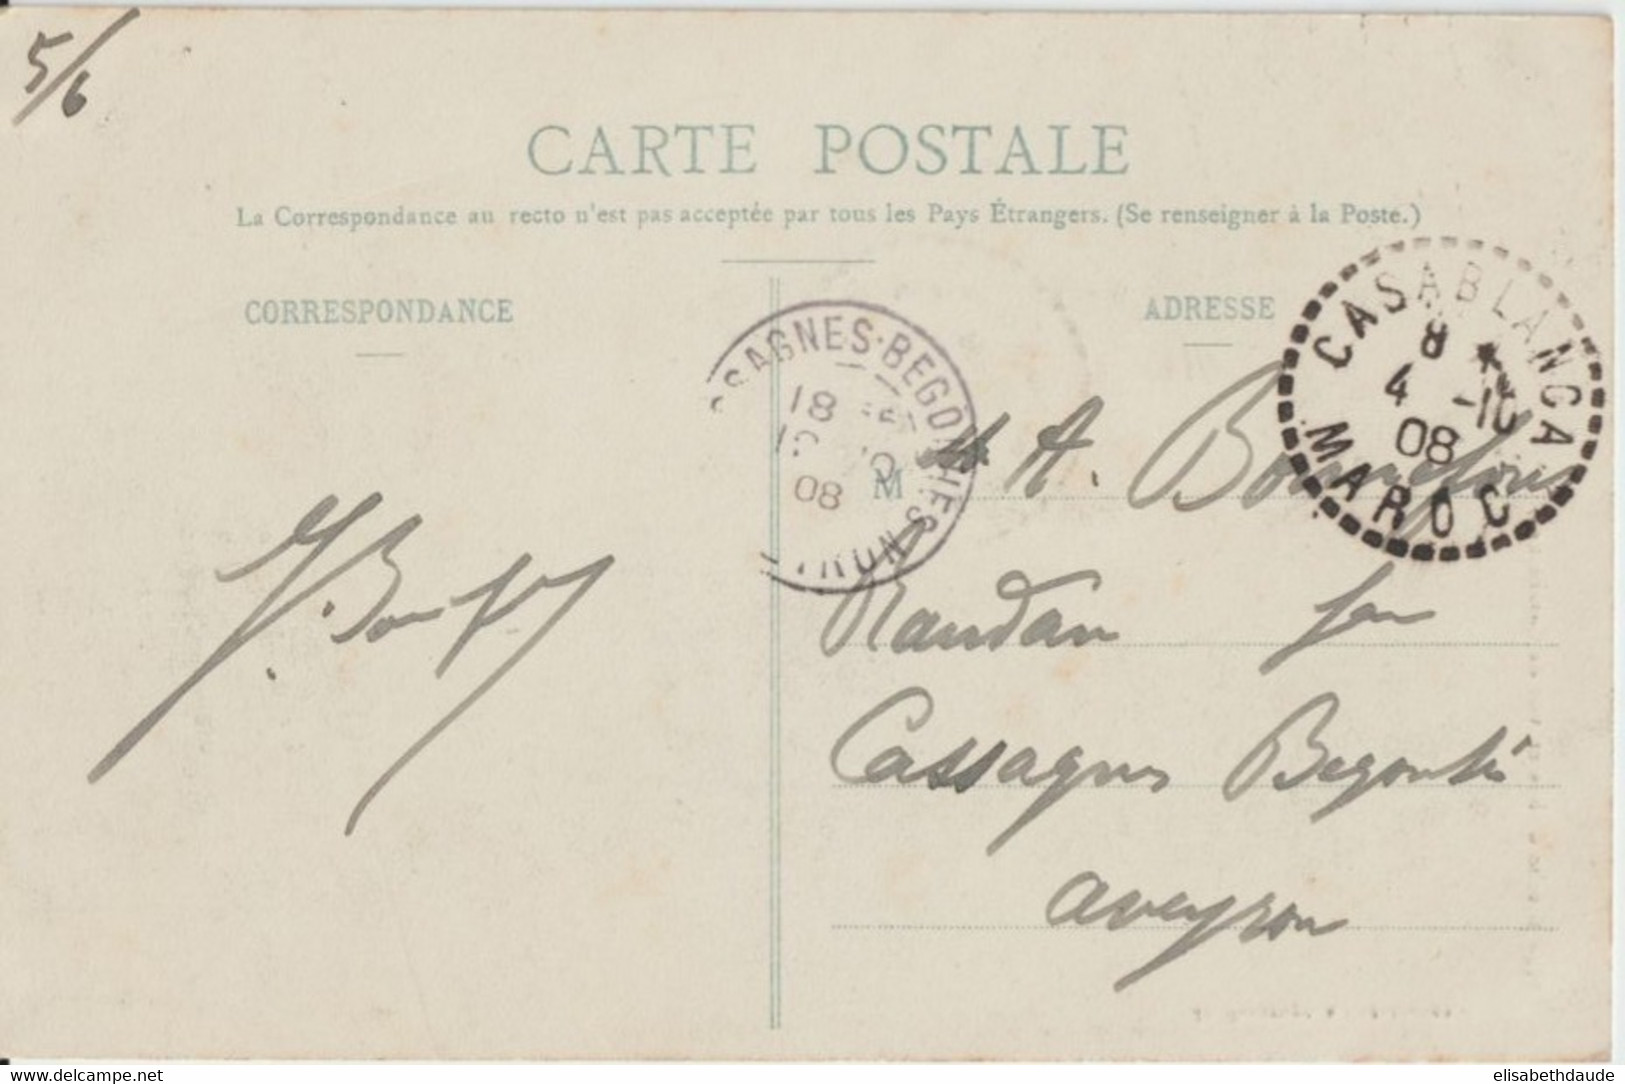 5/6
CARTE POSTALE
La Correspondance au recto n'est pas acceptée par tous les Pays Étrangers. (Se renseigner à la Poste.)
CORRESPONDANCE
ADRESSE
CASABLANCA
8
4 -10
08
MAROC
SAGNES-BEGONHES
18
08
YRON
M A.
par
Cassagnes Begonhès
Aveyron
www.delcampe.net
elisabethdaude